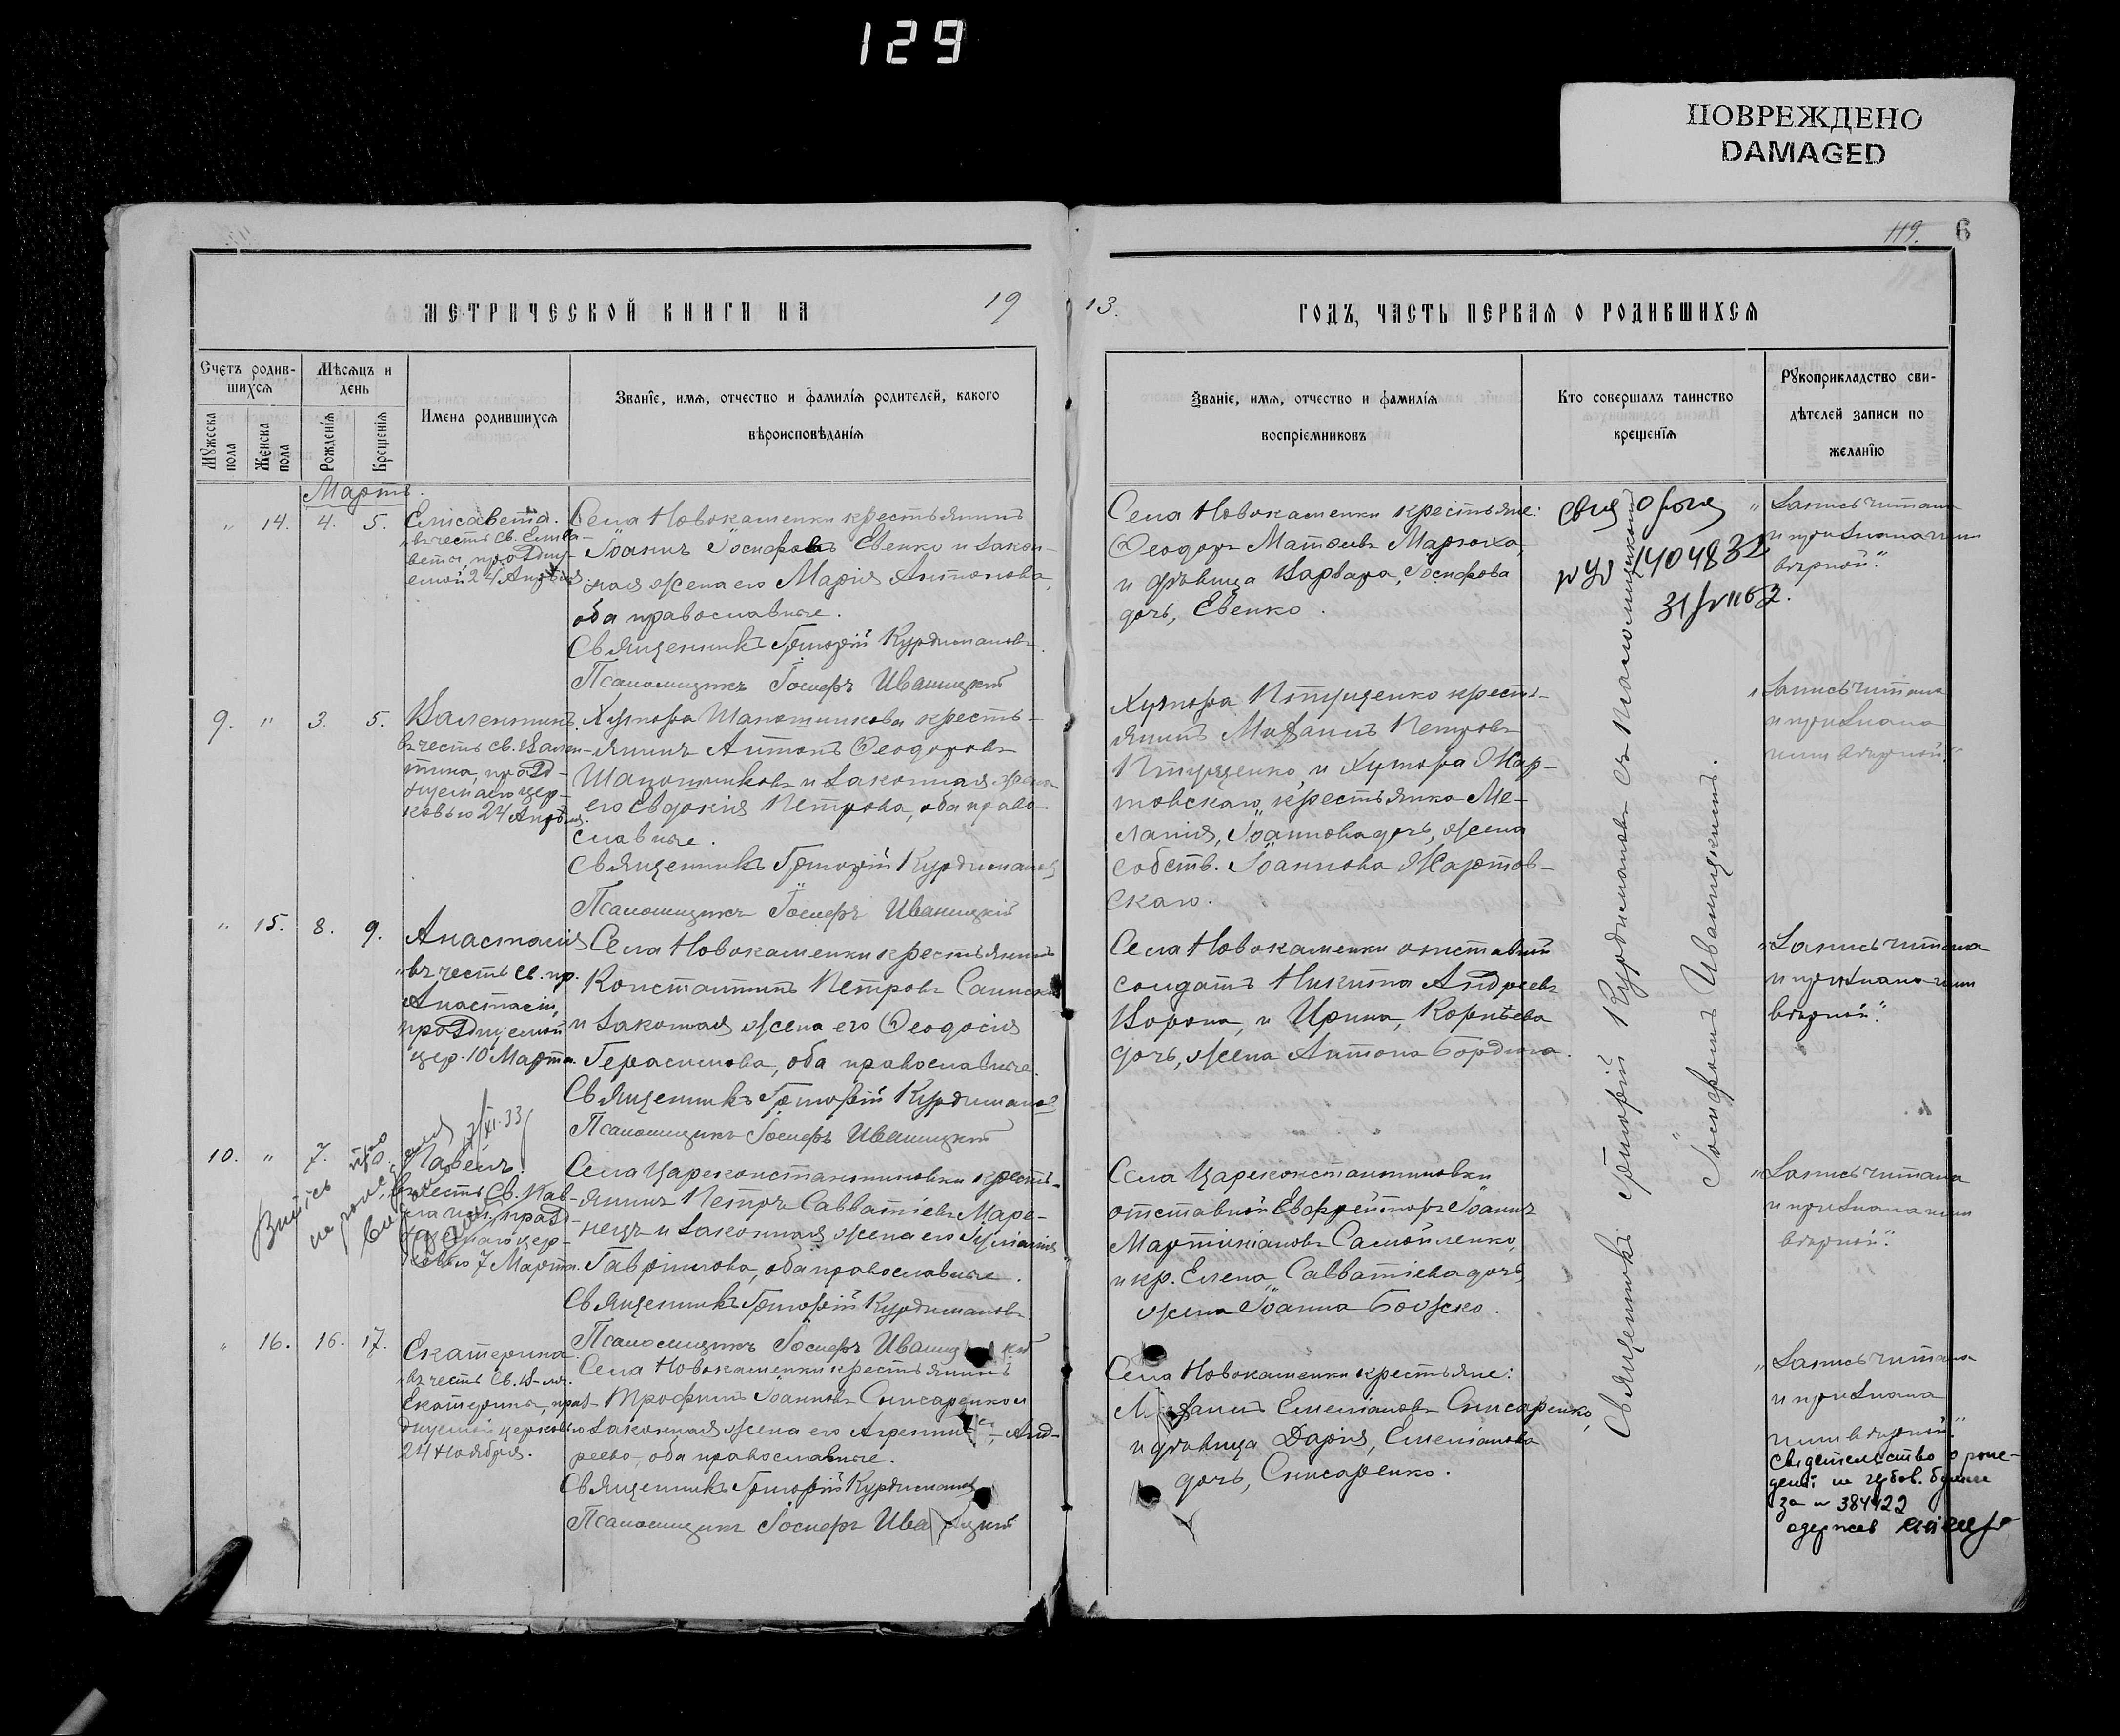 129
ПОВРЕЖДЕНО
DAMAGED
119. 6
МЕТРИЧЕСКОЙ КНИГИ НА 19
13. ГОДЪ, ЧАСТЬ ПЕРВАЯ О РОДИВШИХСЯ
Счетъ родив-
шихся
Мѣсяцъ и
день
Мужеска
пола
Женска
пола
Рожденія
Крещенія
Имена родившихся
Званіе, имя, отчество и фамилія родителей, какого
вѣроисповѣданія
Званіе, имя, отчество и фамилія
воспріемниковъ
Кто совершалъ таинство
крещенія
Рукоприкладство сви-
дѣтелей записи по
желанію
Мартъ.
" 14. 4. 5.
Елисавета.
въ честь св. Елиса-
веты, праздну-
емой 24 Апрѣля
Села Новокаменки крестьянинъ
Іоаннъ Іосифовъ Евенко и закон-
ная жена его Марія Антонова,
оба православные.
Священникъ Григорій Курдимановъ.
Псаломщикъ Іосифъ Иваницкій
Села Новокаменки крестьяне:
Ѳеодоръ Матѳеевъ Марюха,
и дѣвица Варвара, Іосифова
дочь, Евенко.
1404832
"Запись читана
и признана нами
вѣрной".
9. " 3. 5.
Валентинъ.
въ честь св. Вален-
тина, празд-
нуемаго цер-
ковью 24 Апрѣля.
Хутора Шапошникова кресть-
янинъ Антонъ Ѳеодоровъ
Шапошниковъ и законная жена
его Евдокія Петрова, оба право-
славные.
Священникъ Григорій Курдимановъ
Псаломщикъ Іосифъ Иваницкій
Хутора Птущенко кресть-
янинъ Петровъ
Птущенко, и Хутора Жар-
товскаго, крестьянка Ме-
ланія, Іоаннова дочь, жена
собств. Іоаннова Жартов-
скаго.
"Запись читана
и признана
нами вѣрной".
" 15. 8. 9.
Анастасія
"въ честь св. пр.
Анастасіи,
празднуемой
цер. 10 Марта.
Села Новокаменки крестьянинъ
Константинъ Петровъ
и законная жена его Ѳеодосія
Герасимова, оба православные.
Священникъ Григорій Курдимановъ
Псаломщикъ Іосифъ Иваницкій
Села Новокаменки отставной
солдатъ Никита Андреевъ
Ворона, и Ирина, Корнѣева
дочь, жена Антона Бордюга.
"Запись читана
и признана нами
вѣрной".
10. " 7. 10.
Павелъ.
въ честь Св. Пав-
ла исп., празд-
нуемаго цер-
ковью 7 Марта.
Села Цареконстантиновки кресть-
янинъ Петръ Савватіевъ Маре-
нецъ и законная жена его Іуліанія
Гавріилова, оба православные.
Священникъ Григорій Курдимановъ
Псаломщикъ Іосифъ Иваницкій
Села Цареконстантиновки
отставной Ефрейторъ Іоаннъ
Мартиніановъ Самойленко,
и кр. Елена, Савватіева дочь,
жена Іоанна Божско.
"Запись читана
и признана нами
вѣрной".
" 16. 16. 17.
Екатерина
"въ честь Св. В-мч.
Екатерины, празд-
днуемой церковью
24 Ноября.
Села Новокаменки крестьянинъ
Трофимъ Іоанновъ Снисаренко и
законная жена его Анд-
реева, оба православные.
Священникъ Григорій Курдимановъ
Псаломщикъ Іосифъ Иваницкій
Села Новокаменки крестьяне:
Емеліановъ Снисаренко,
и дѣвица Дарія, Емеліанова
дочь, Снисаренко.
"Запись читана
и признана
нами вѣрной".
за № 384422
Священникъ Григорій Курдимановъ съ Псаломщикомъ
Іосифомъ Иваницкимъ.